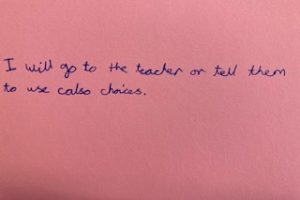 I will go to the teacher or tell them
to use calso choices.